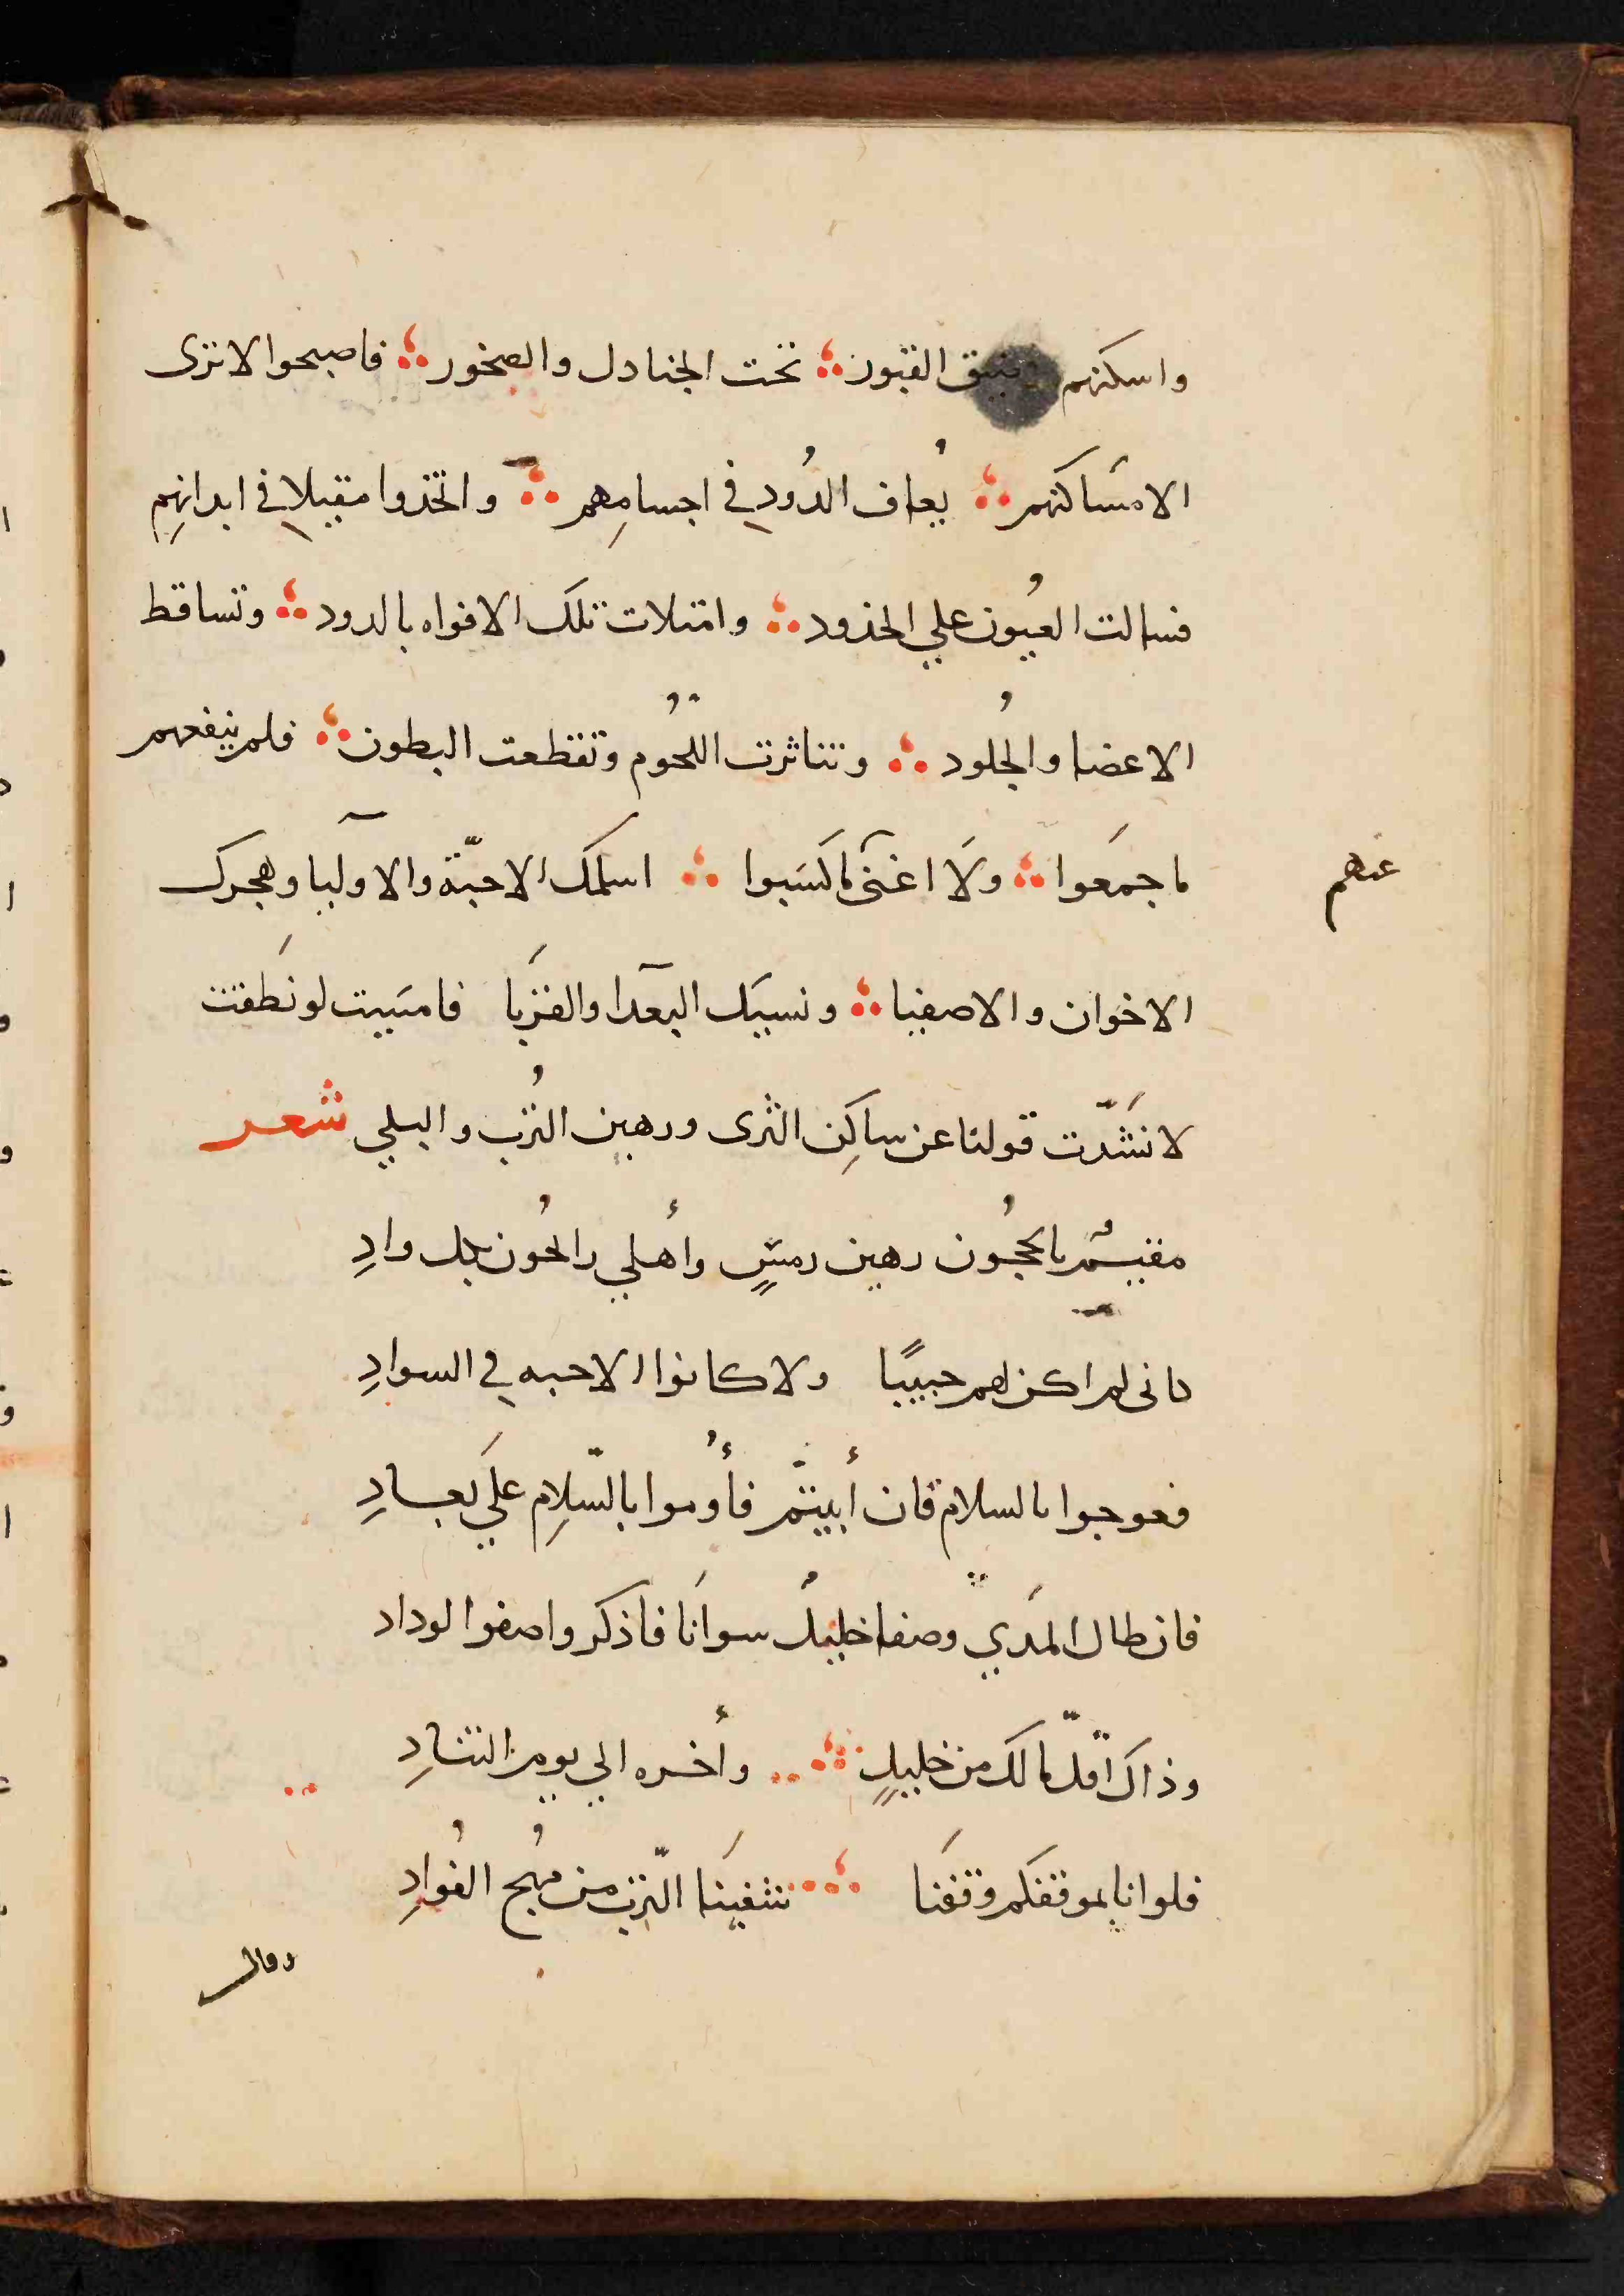 واسكنهم ضيق القبور ؞ تحت الجنادل والصخور ؞ فاصبحوا لا ترى
الا مسَاكنهم ؞ يُعاف الدُودِ في اجسامِهم ؞ واتخذوا مقيلا في ابدانِهِم
فسالت العيُون علي الخدود ؞ وامتلات تلك الافواه بالدود ؞ وتساقط
الاعضا والجُلود ؞ وتناثرت اللحُوم وتقطعت البطون ؞ فلم ينفعهم
ما جمَعوا ؞ ولَا اغنَى ما كسَبوا ؞ اسلمك الاحبّة والاوليا وهجرك
عنهم
الاخوان والاصفيا ؞ ونسيَك البعدَا والقرَبا فامسَيت لو نَطقت
لانشَدّت قولنا عن ساكِن الثرى ورهين التُرب والبلي شعر
مقيمٌ بالحجُون رهين رمسٍ وأهلي رائحُون بكل وادِ
كانى لم اكن لهم حبيبًا ولا كانوا الاحبه في السوادِ
فعوجوا بالسلام فان أبيتم فأُوموا بالسّلام علَي بعادِ
فان طال المَدي وصفا خليلٌ سوانَا فاذكروا صفوا لوداد
وذاك اقلّ مالك من خليلٍ ؞ وأخره الي يوم التنادِ
فلو انا بموقفكم وقفنَا ؞ سقينَا التّرب من مُهج الفُوادِ
وقال